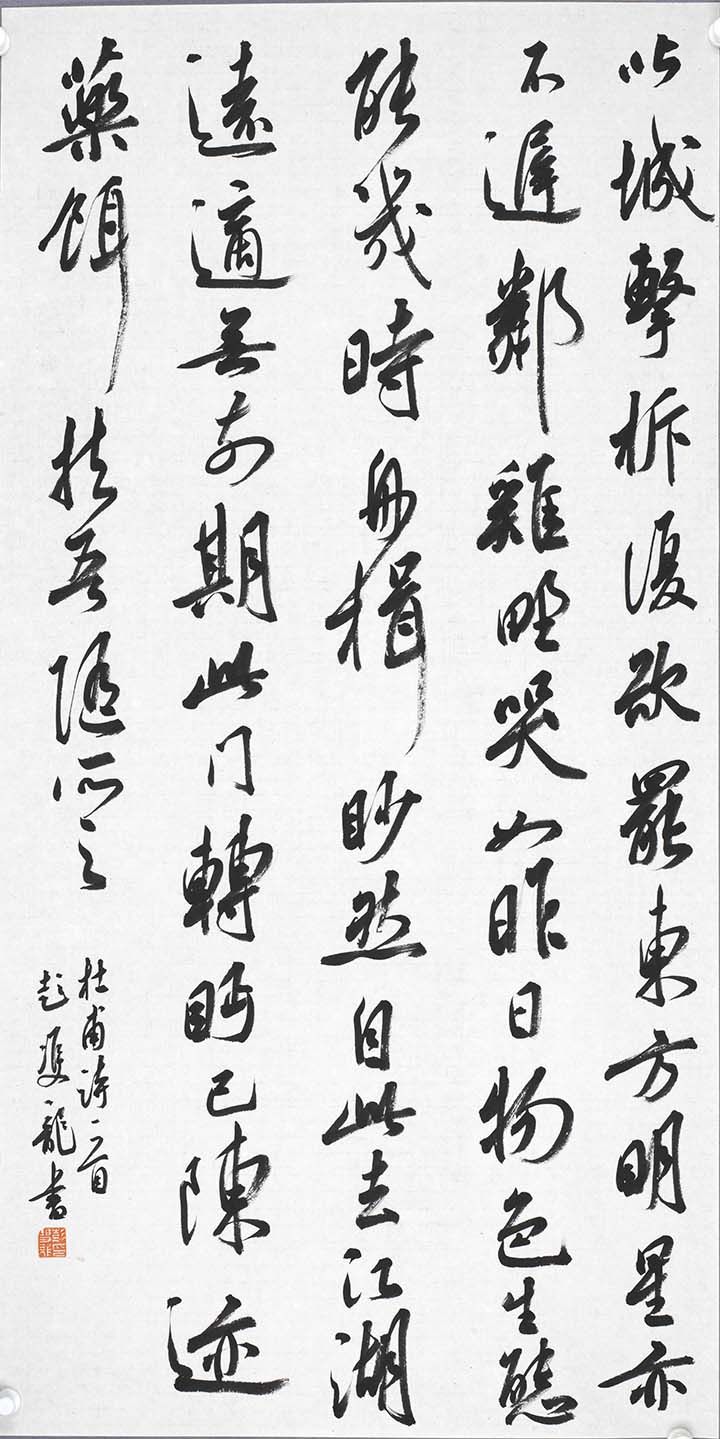 北城擊柝復欲罷東方明星亦
不遲鄰雞野哭如昨日物色生態
能幾時舟楫眇然自此去江湖
遠適無前期此門轉眄已陳迹
藥餌扶吾隨所之
杜甫詩一首
彭雙龍書